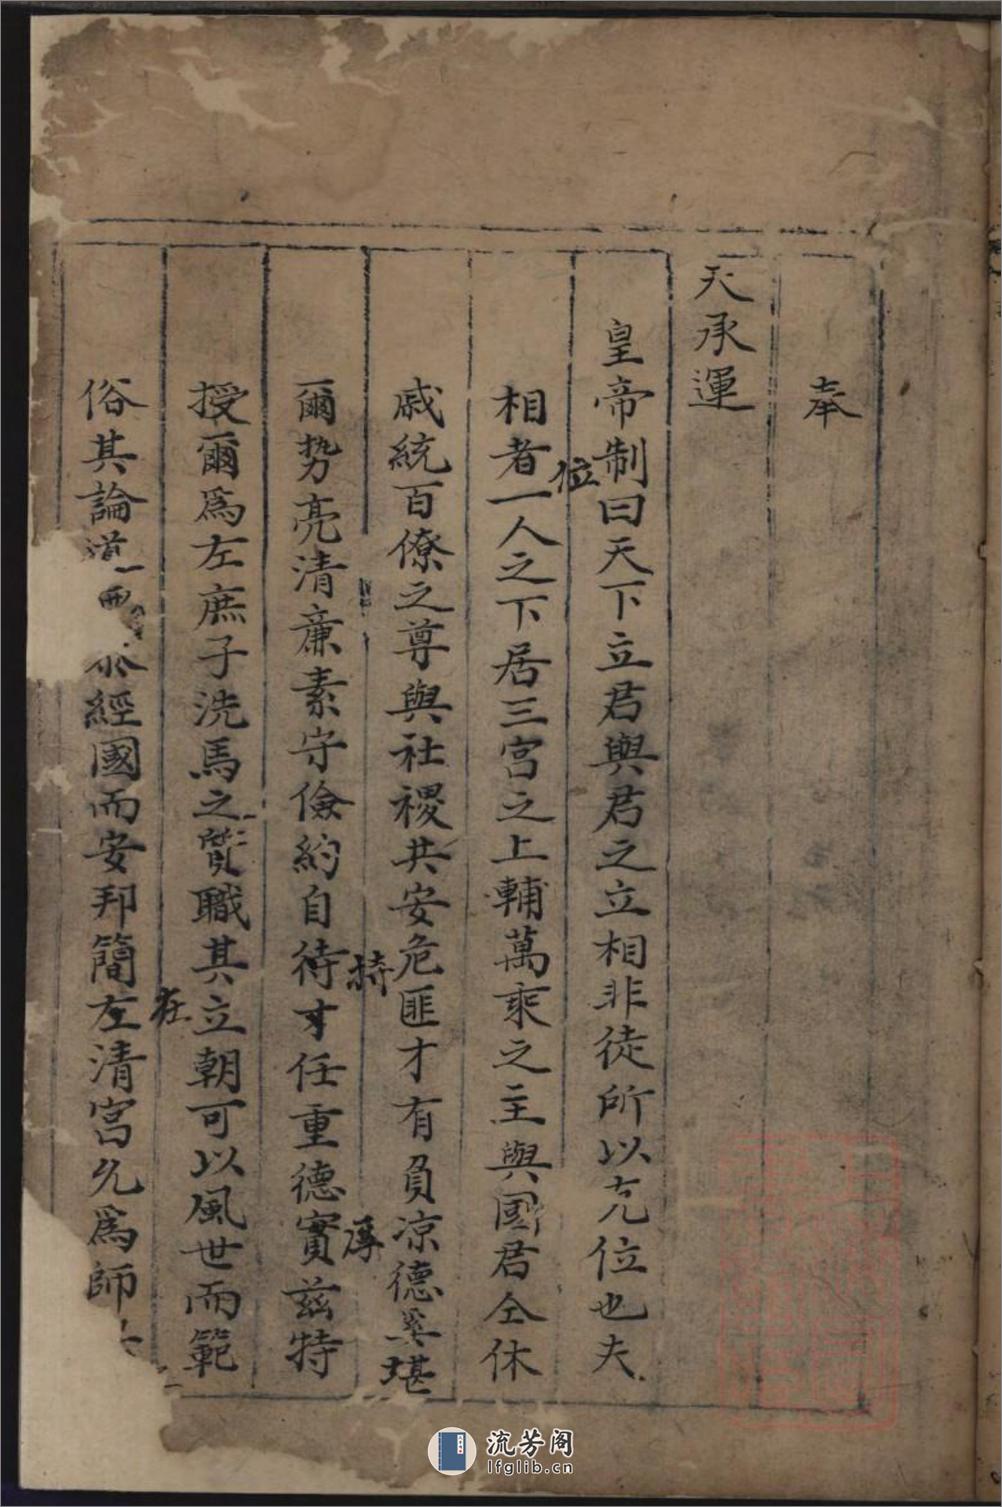 奉
天承運
皇帝制曰天下立君與君之立相非徒所以充位也夫
位
相者一人之下居三宫之上輔萬乘之主與國君仝休
戚統百僚之尊與社稷共安危匪才有負凉德奚堪
持
厚
爾势亮清亷素守儉約自待才任重德實兹特
授爾爲左庶子洗馬之職其立朝可以風世而範
在
俗其論道經國而安邦簡左清宫允爲師
流芳阁
lfglib.cn